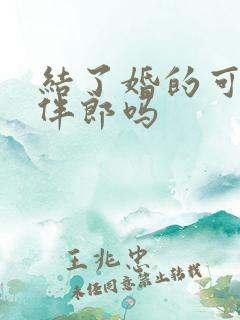 結了婚的可
伴郎吗
王兆忠
未经同意禁止转载